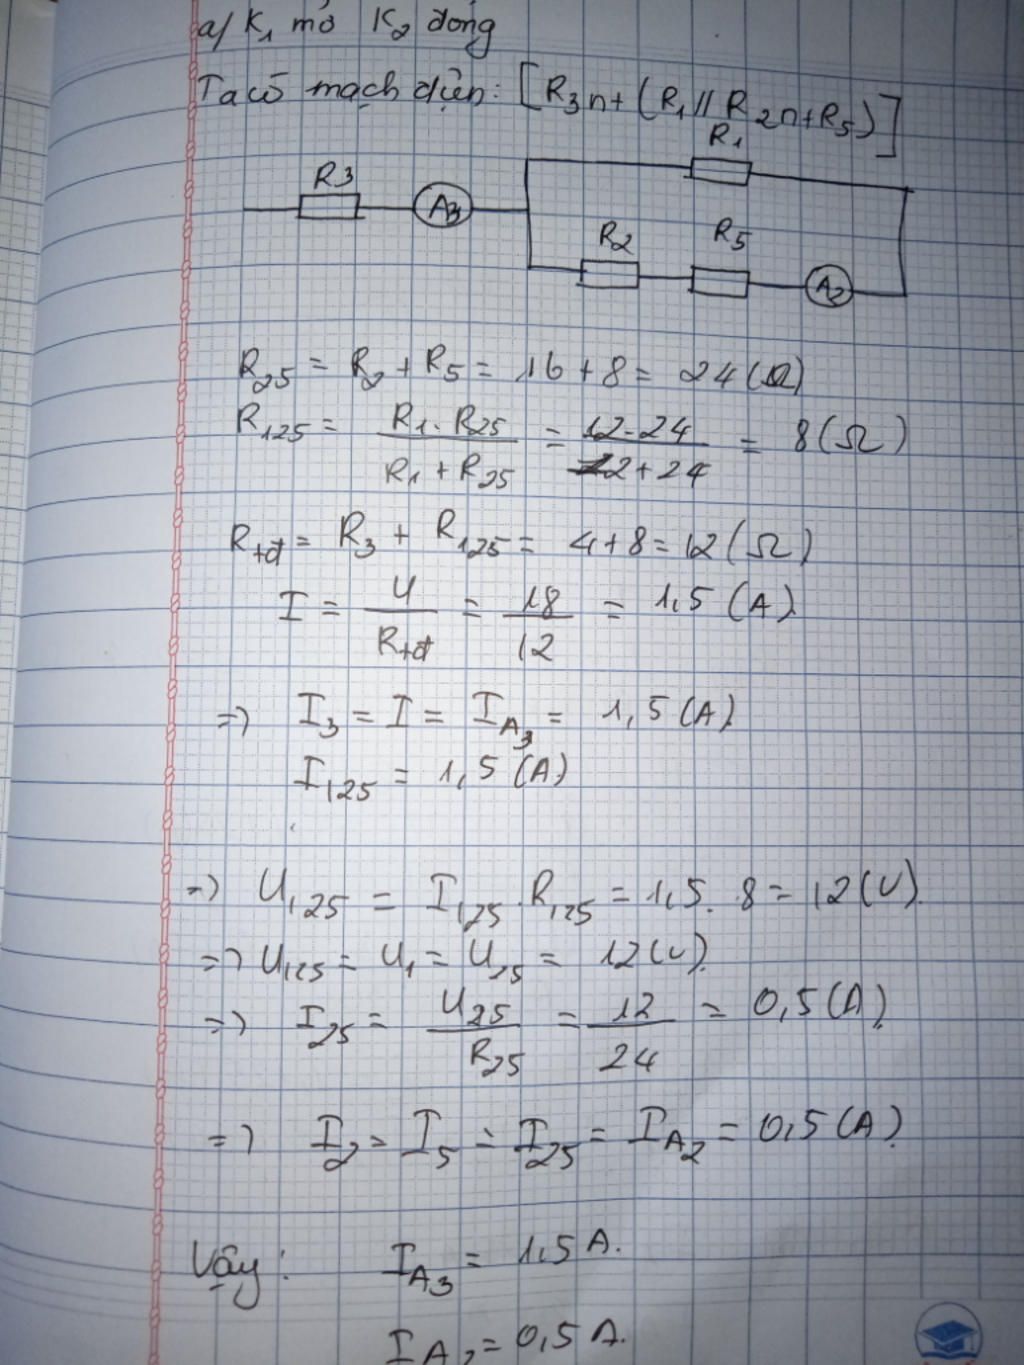 a/ K₁ mở K₂ đóng
Ta có mạch điện: [R₃nt(R₁//R₂nt R₅)]
R₁
R₃
A₃
R₂ R₅
A₂
R₂₅ = R₂ + R₅ = 16 + 8 = 24 (Ω)
R₁₂₅ = R₁.R₂₅ / R₁ + R₂₅ = 12.24 / 12 + 24 = 8 (Ω)
Rtđ = R₃ + R₁₂₅ = 4 + 8 = 12 (Ω)
I = U / Rtđ = 18 / 12 = 1,5 (A)
=> I₃ = I = I_A₃ = 1,5 (A)
I₁₂₅ = 1,5 (A)
=> U₁₂₅ = I₁₂₅.R₁₂₅ = 1,5.8 = 12 (V).
=> U₁₂₅ = U₁ = U₂₅ = 12 (V).
=> I₂₅ = U₂₅ / R₂₅ = 12 / 24 = 0,5 (A)
=> I₂ = I₅ = I₂₅ = I_A₂ = 0,5 (A)
Vậy: I_A₃ = 1,5 A.
I_A₂ = 0,5 A.